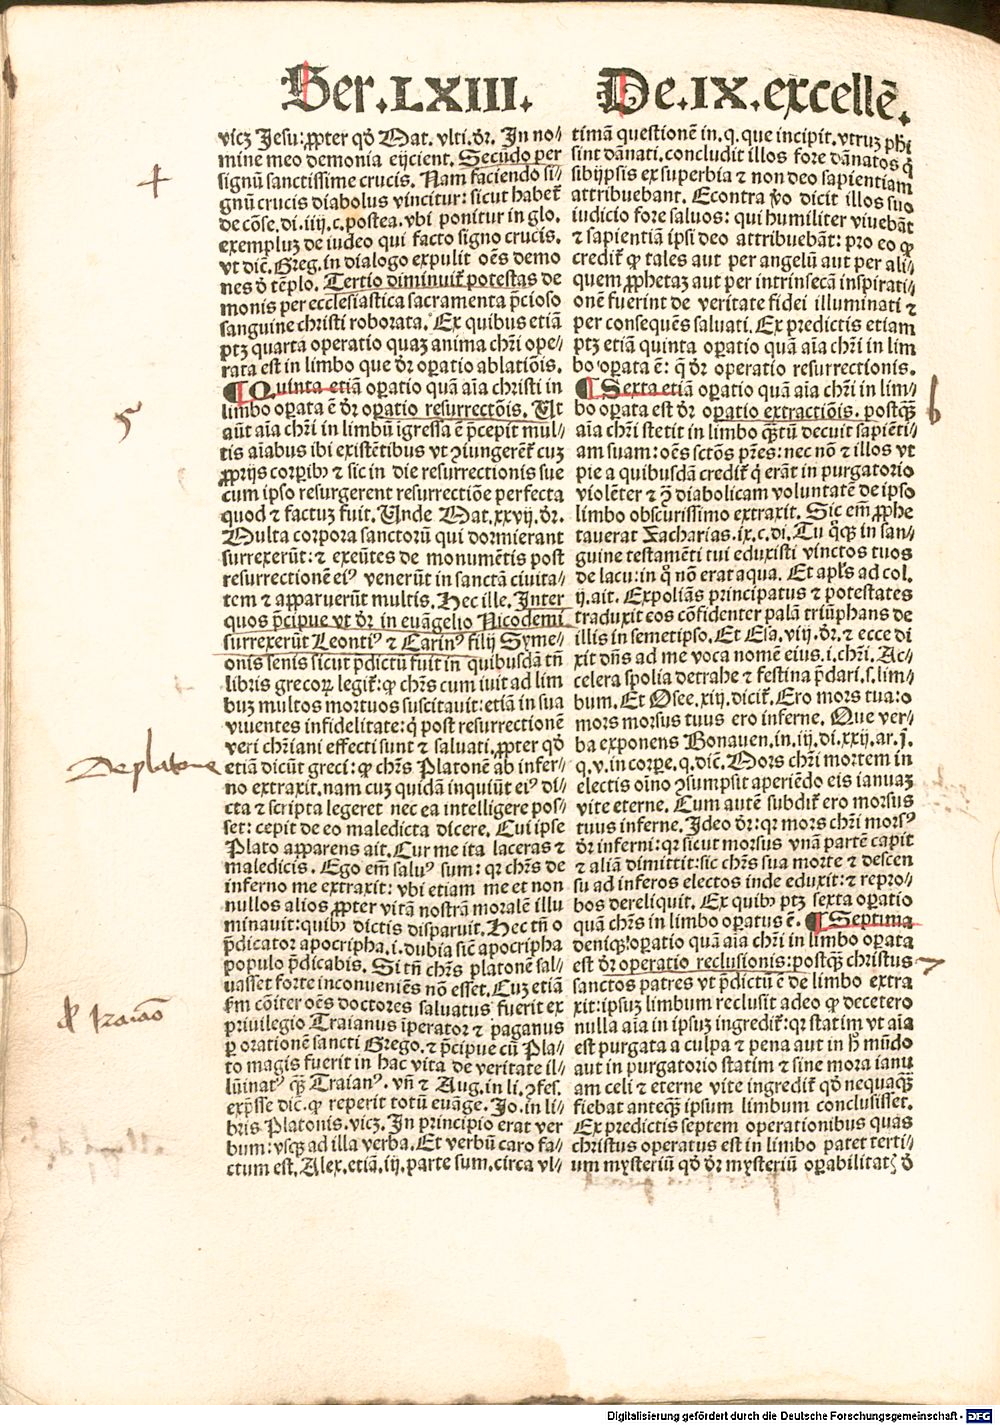 Ser. LXIII. De. IX. excellē.
vicꝫ Jesu: ꝓpter qđ Mat. vlti. dr̄. In no⸗
mine meo demonia eijcient. Secūdo per
signū sanctissime crucis. Nam faciendo si⸗
gnū crucis diabolus vincitur: sicut habet᷑
de cōse. di. iiij. c. postea. vbi ponitur in glo.
exempluꝫ de iudeo qui facto signo crucis.
vt dic̄. Greg. in dialogo expulit oēs demo
nes ð tēplo. Tertio diminuit᷑ potestas de
monis per ecclesiastica sacramenta p̄cioso
sanguine christi roborata. Ex quibus etiā
ptꝫ quarta operatio quaꝫ anima chr̄i ope⸗
rata est in limbo que dr̄ oꝑatio ablatiōis.
¶ Quinta etiā oꝑatio quā aīa christi in
limbo oꝑata ē dr̄ oꝑatio resurrectōis. Ut
aūt aīa chr̄i in limbū īgressa ē p̄cepit mul⸗
tis aīabus ibi existētibus vt ꝯiungerēt᷑ cuꝫ
ꝓprijs corꝑibꝰ ⁊ sic in die resurrectionis sue
cum ipso resurgerent resurrectiōe perfecta
quod ⁊ factuꝫ fuit. Unde Mat. xxvij. dr̄.
Multa corpora sanctorū qui dormierant
surrexerūt: ⁊ exeūtes de monumētis post
resurrectionē eiꝰ venerūt in sanctā ciuita⸗
tem ⁊ apparuerūt multis. Hec ille. Inter
quos p̄cipue vt dr̄ in euāgelio Nicodemi
surrexerūt Leontiꝰ ⁊ Carinꝰ filij Syme⸗
onis senis sicut p̄dictū fuit in quibusdā tn̄
libris grecoꝝ legit᷑: ꝙ chr̄s cum iuit ad lim
buꝫ multos mortuos suscitauit: etiā in sua
viuentes infidelitate: q̇ post resurrectionē
veri chr̄iani effecti sunt ⁊ saluati. ꝓpter qđ
etiā dicūt greci: ꝙ chr̄s Platonē ab infer⸗
no extraxit. nam cuꝫ quidā inquiūt eiꝰ di⸗
cta ⁊ scripta legeret nec ea intelligere pos⸗
set: cepit de eo maledicta dicere. Cui ipse
Plato apparens ait. Cur me ita laceras ⁊
maledicis. Ego em̄ saluꝰ sum: qr chr̄s de
inferno me extraxit: vbi etiam me et non
nullos alios ꝓpter vitā nostrā moralē illu
minauit: quibꝰ dictis disparuit. Hec tn̄ o
p̄dicator apocripha. i. dubia sic̄ apocripha
populo p̄dicabis. Si tn̄ chr̄s platonē sal⸗
uasset forte inconueniēs nō esset. Cuꝫ etiā
fm̄ cōiter oēs doctores saluatus fuerit ex
priuilegio Traianus īperator ⁊ paganus
ꝑ orationē sancti Grego. ⁊ p̄cipue cū Pla⸗
to magis fuerit in hac vita de veritate il⸗
lūinatꝰ qꝫ̄ Traianꝰ. vn̄ ⁊ Aug. in li. ꝯfes.
exp̄sse dic. ꝙ reperit totū euāge. Jo. in li⸗
bris Platonis. vicꝫ. In principio erat ver
bum: vsqꝫ ad illa verba. Et verbū caro fa⸗
ctum est. Alex. etiā. iij. parte sum. circa vl⸗
timā questionē in. q. que incipit. vtruꝫ phi
sint dānati. concludit illos fore dānatos q̇
sibijpsis ex superbia ⁊ non deo sapientiam
attribuebant. Econtra v̊o dicit illos suo
iudicio fore saluos: qui humiliter viuebāt
⁊ sapientiā ipsi deo attribuebāt: pro eo ꝙ
credit᷑ ꝙ tales aut per angelū aut per ali⸗
quem ꝓphetaꝫ aut per intrinsecā inspirati⸗
onē fuerint de veritate fidei illuminati ⁊
per consequēs saluati. Ex predictis etiam
ptꝫ etiā quinta oꝑatio quā aīa chr̄i in lim
bo oꝑata ē: q̄ dr̄ operatio resurrectionis.
¶ Sexta etiā oꝑatio quā aīa chr̄i in lim⸗
bo oꝑata est dr̄ oꝑatio extractiōis. postqꝫ̄
aīa chr̄i stetit in limbo qꝫ̄tū decuit sapiēti⸗
am suam: oēs sctōs pr̄es: nec nō ⁊ illos vt
pie a quibusdā credit᷑ q̇ erāt in purgatorio
violēter ⁊ ꝯ̄ diabolicam voluntatē de ipso
limbo obscurissimo extraxit. Sic em̄ ꝓphe
tauerat Zacharias. ix. c. di. Tu q̊qꝫ in san⸗
guine testamēti tui eduxisti vinctos tuos
de lacu: in q̊ nō erat aqua. Et apl's ad col.
ij. ait. Expoliās principatus ⁊ potestates
traduxit eos cōfidenter palā triūphans de
illis in semetipso. Et Esa. viij. dr̄. ⁊ ecce di
xit dn̄s ad me voca nomē eius. i. chr̄i. Ac⸗
celera spolia detrahe ⁊ festina p̄dari. s. lim⸗
bum. Et Osee. xiij. dicit᷑. Ero mors tua: o
mors morsus tuus ero inferne. Que ver⸗
ba exponens Bonauen. in. iij. di. xxij. ar. j.
q. v. in corpe. q. dic̄. Mors chr̄i mortem in
electis oīno ꝯsumpsit aperiēdo eis ianuaꝫ
vite eterne. Cum autē subdit᷑ ero morsus
tuus inferne. Ideo dr̄: qr mors chr̄i morsꝰ
dr̄ inferni: qr sicut morsus vnā partē capit
⁊ aliā dimittit: sic chr̄s sua morte ⁊ descen
su ad inferos electos inde eduxit: ⁊ repro⸗
bos dereliquit. Ex quibꝰ ptꝫ sexta oꝑatio
quā chr̄s in limbo oꝑatus ē. ¶ Septima
deniqꝫ oꝑatio quā aīa chr̄i in limbo oꝑata
est dr̄ operatio reclusionis: postqꝫ̄ christus
sanctos patres vt p̄dictū ē de limbo extra
xit: ipsuꝫ limbum reclusit adeo ꝙ decetero
nulla aīa in ipsuꝫ ingredit᷑: qr statim vt aīa
est purgata a culpa ⁊ pena aut in ħ mūdo
aut in purgatorio statim ⁊ sine mora ianu
am celi ⁊ eterne vite ingredit᷑ qđ nequaqꝫ̄
fiebat anteqꝫ̄ ipsum limbum conclusisset.
Ex predictis septem operationibus quas
christus operatus est in limbo patet terti⸗
um mysteriū qđ dr̄ mysteriū oꝑabilitatꝭ ð
4
5
De platone
de traiano
6
7
Digitalisierung gefördert durch die Deutsche Forschungsgemeinschaft - DFG